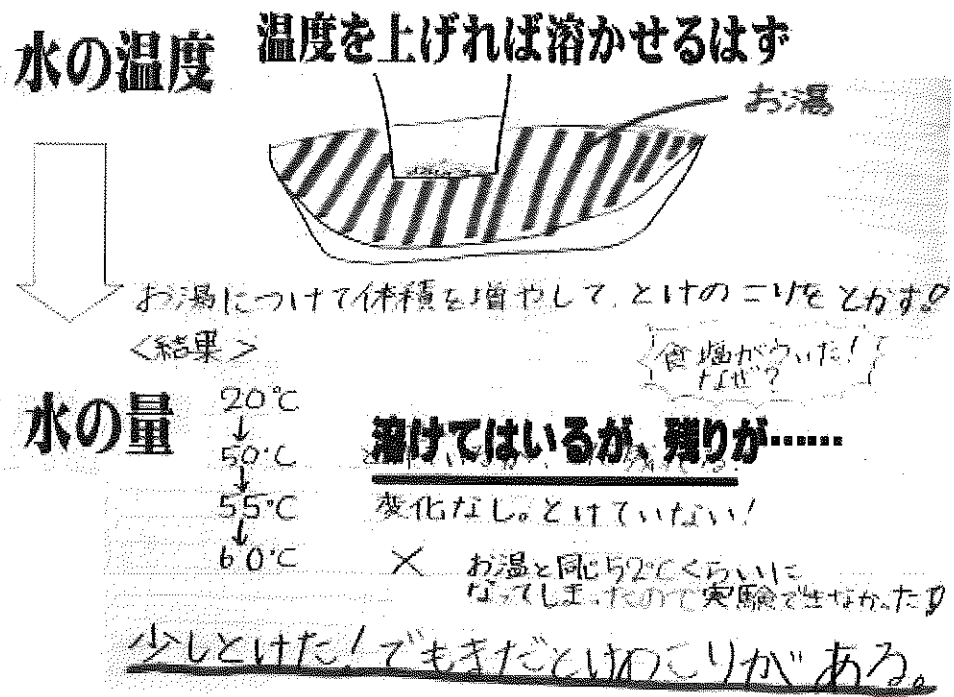 水の温度
温度を上げれば溶かせるはず
お湯
お湯につけて体積を増やして、とけのこりをとかす!
<結果>
食塩がういた!
なぜ?
水の量
20℃
↓
50℃
溶けてはいるが、残りが……
↓
55℃ 変化なし。とけていない!
↓
60℃ × お湯と同じ52℃くらいに
なってしまったので実験できなかった!
少しとけた!でもまだとけのこりがある。